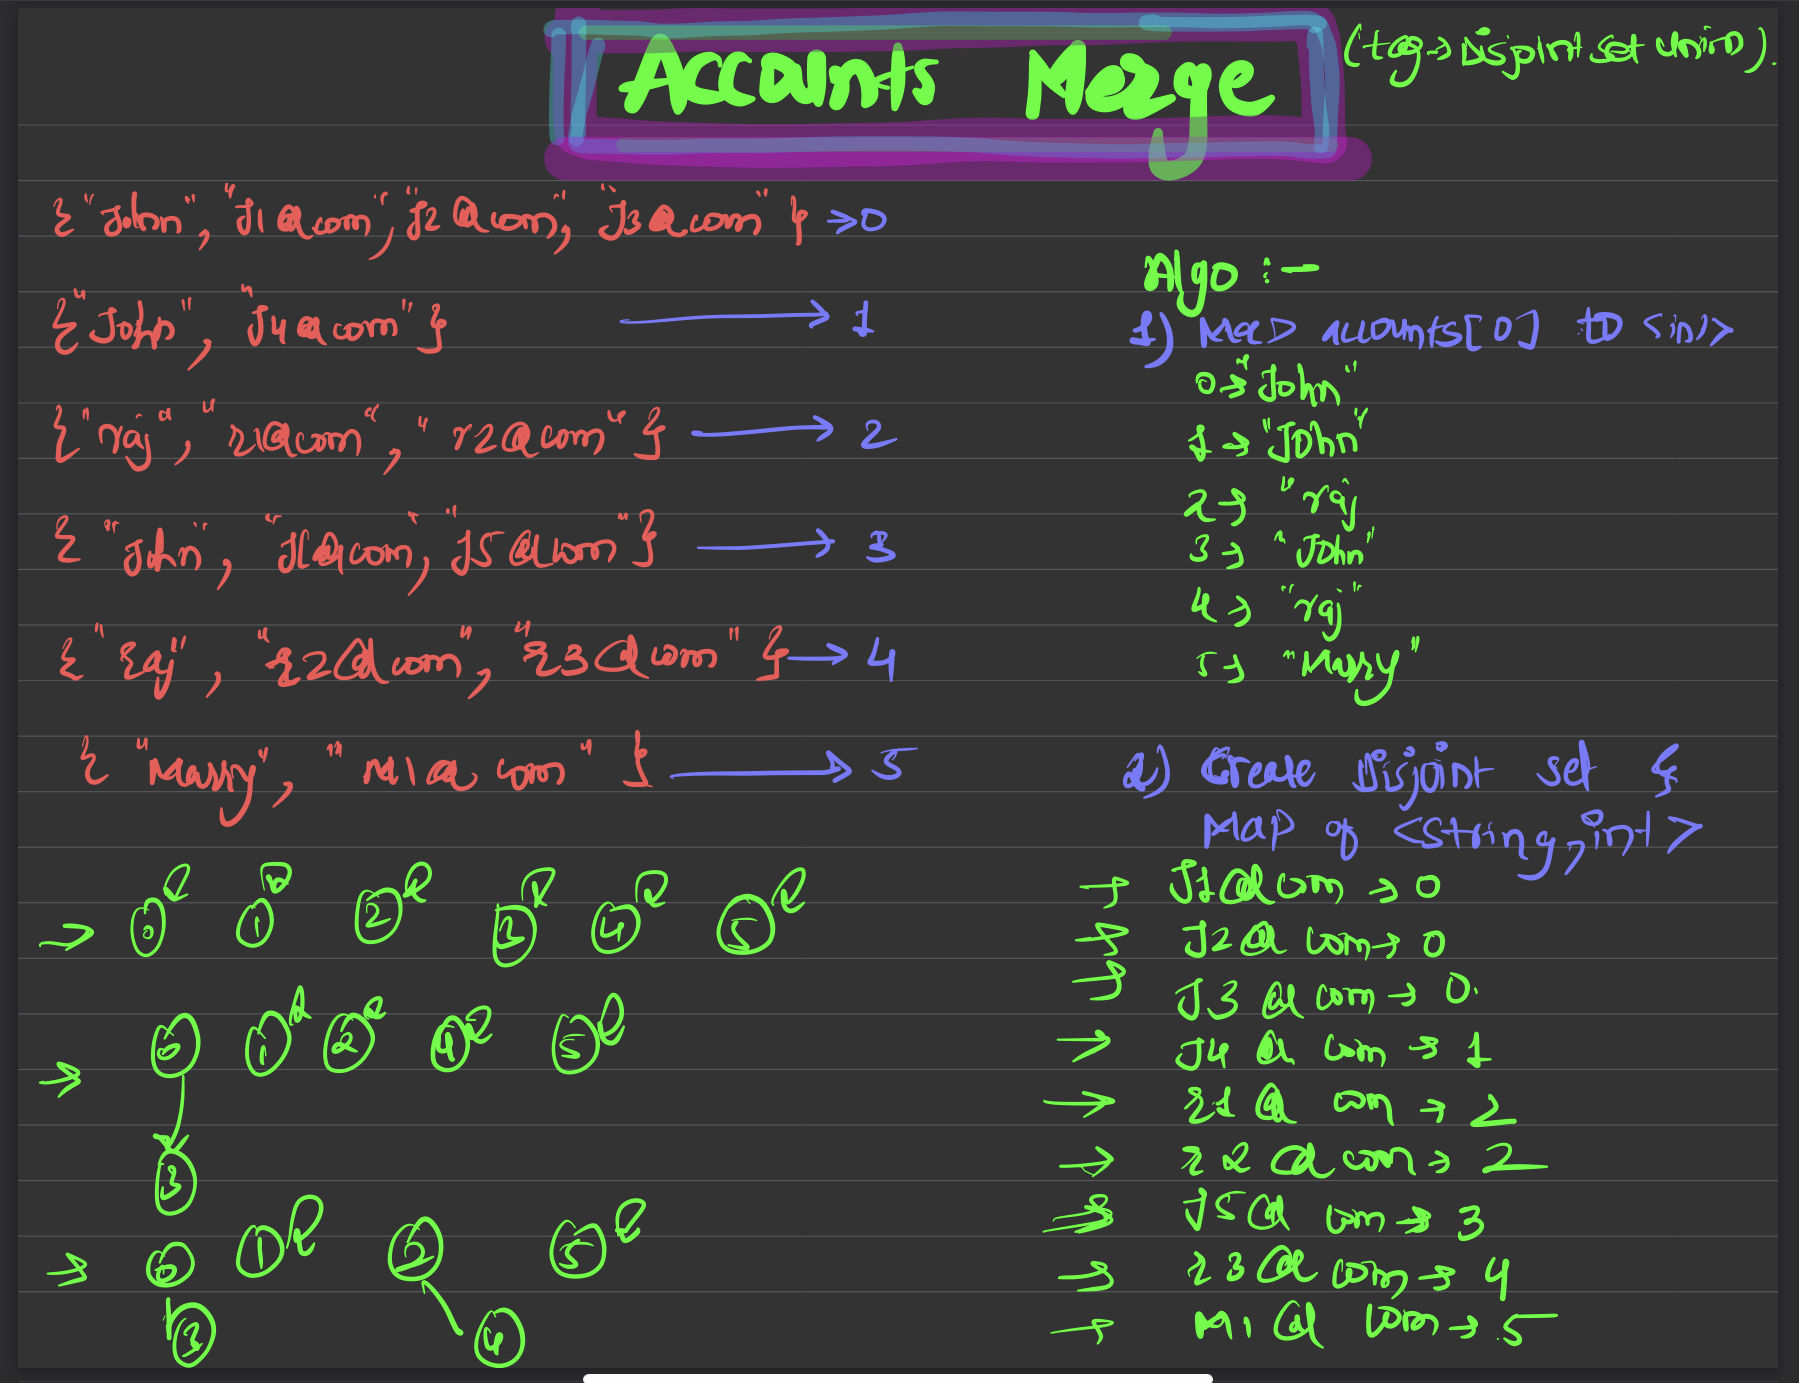 Accounts Merge
(tag → Disjoint set union).
{"John", "J1@com", "J2@com", "J3@com"} → 0
{"John", "J4@com"} → 1
{"raj", "r1@com", "r2@com"} → 2
{"John", "J1@com", "J5@com"} → 3
{"raj", "r2@com", "r3@com"} → 4
{"Marry", "M1@com"} → 5
→ 0 R 1 R 2 R 3 R 4 R 5 R
→ 0 1 R 2 R 4 R 5 R
3
→ 0 1 R 2 5 R
3 4
Algo :-
1) Map accounts[0] to <int>
0 → "John"
1 → "John"
2 → "raj
3 → "John"
4 → "raj"
5 → "Marry"
2) Create Disjoint set &
Map of <string, int>
→ J1@com → 0
→ J2@com → 0
→ J3@com → 0.
→ J4@com → 1
→ r1@com → 2
→ r2@com → 2
→ J5@com → 3
→ r3@com → 4
→ M1@com → 5